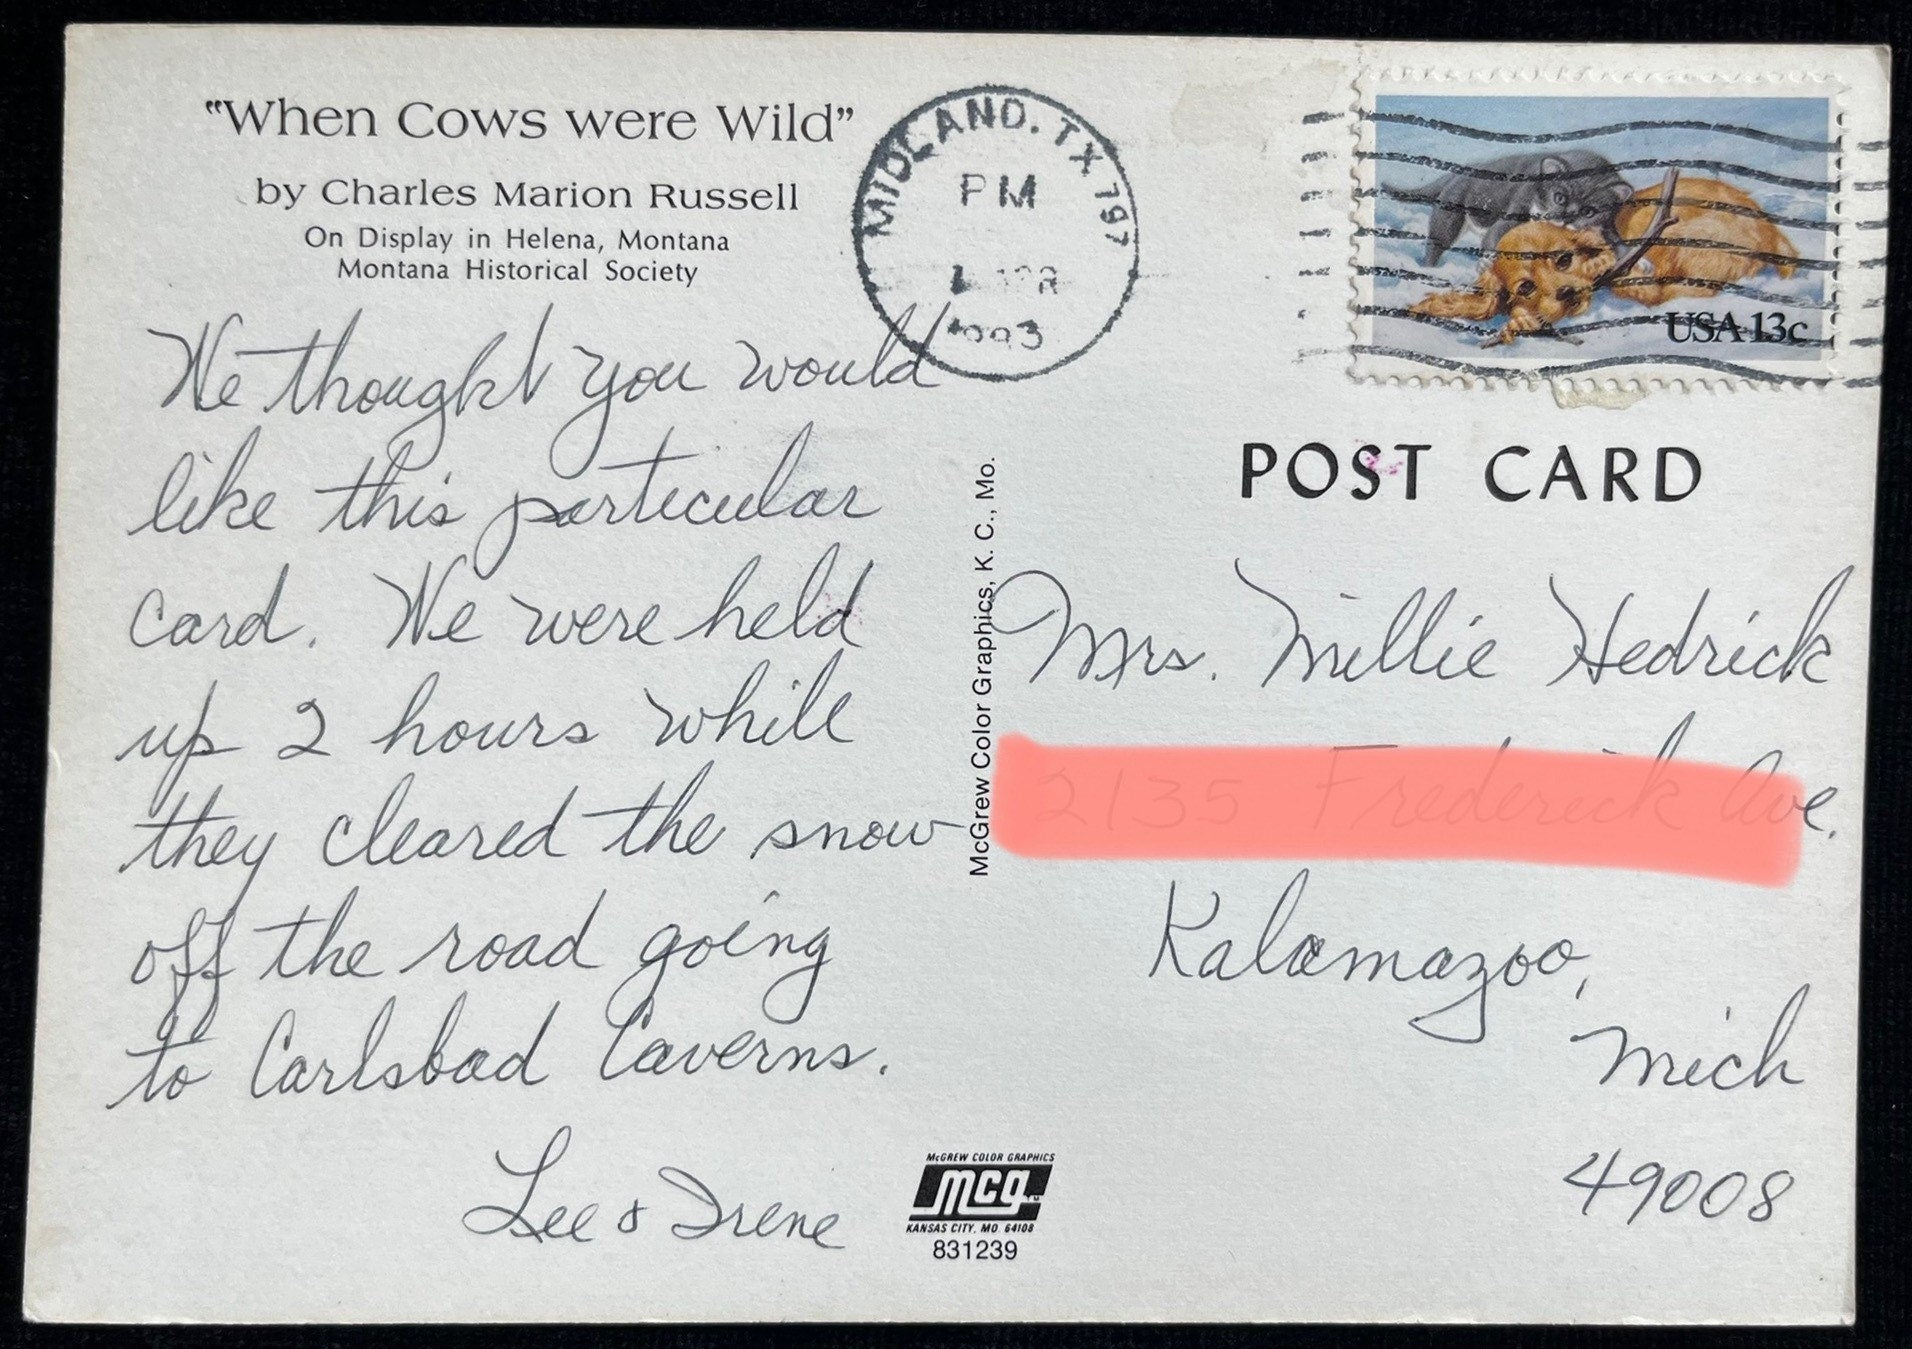 "When Cows were Wild"
by Charles Marion Russell
On Display in Helena, Montana
Montana Historical Society
MIDLAND, TX 797
PM
USA 13c
We thought you would
like this particular
card. We were held
up 2 hours while
they cleared the snow
off the road going
to Carlsbad Caverns.
Lee & Irene
McGrew Color Graphics, K. C., Mo.
POST CARD
Mrs. Millie Hedrick
Kalamazoo,
Mich
49008
McGREW COLOR GRAPHICS
mcg™
KANSAS CITY, MO. 64108
831239